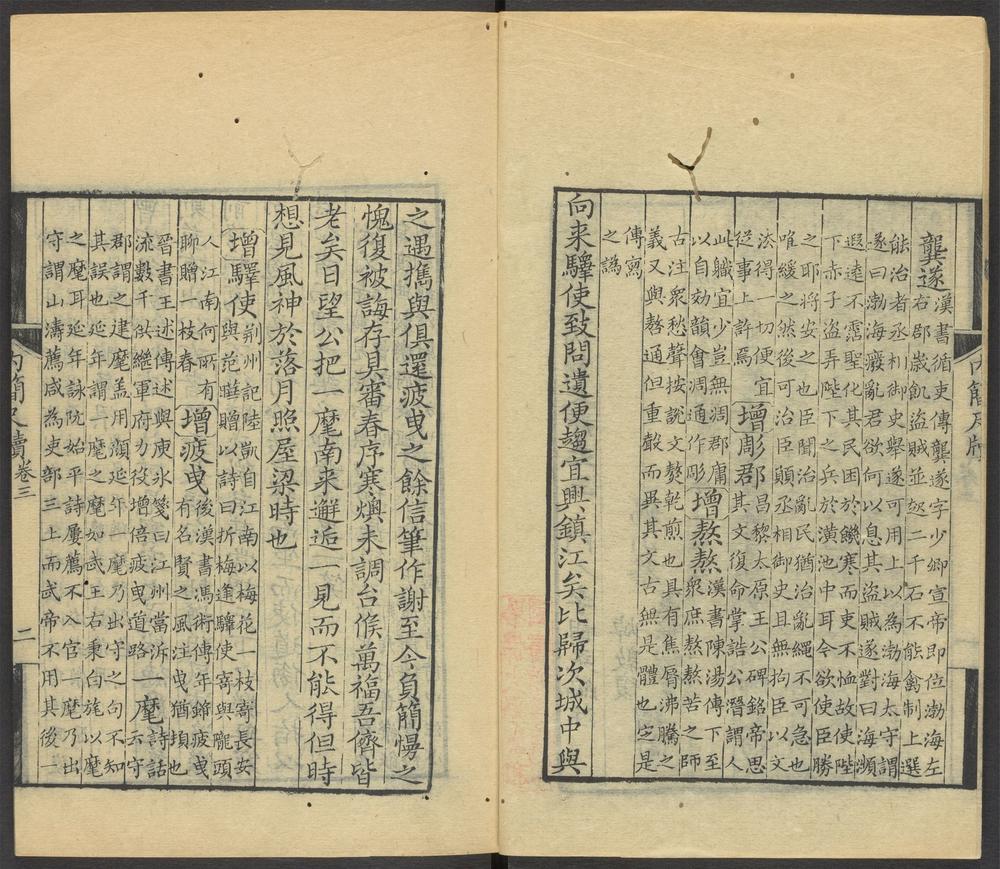 龔遂漢書循吏傳龔遂字少卿宣帝即位渤海左
右郡歲飢盜賊並起二千石不能禽制上選
能治者丞相御史舉遂可用上以為渤海太守謂
遂曰渤海癈亂君欲何以息其盜賊遂對曰海瀕
遐遠不霑聖化其民困於饑寒而吏不恤故使陛
下赤子盜弄陛下之兵於潢池中耳今欲使臣勝
之耶將安之也臣聞治亂民猶治亂繩不可急也
唯緩之然後可治臣願丞相御史且無拘臣以文
法得一切便宜
從事上許焉
增彫郡昌黎太原王公碑銘帝思
其文復命掌誥公潛謂人
此軄宜少豈無凋郡庸
以自効韻會凋通作彫
增熬熬漢書陳湯傳下至
衆庶熬熬苦之師
古注衆愁聲按說文熬乾煎也具有焦屑沸騰之
義又與嗸通但重㲉而異其文古無是體也定是
傳寫
之譌
向来驛使致問遺便趨宜興鎮江矣比歸次城中與
之遇攜與俱還疲曳之餘信筆作謝至今負簡慢之
愧復被誨存具審春序寒燠未調台候萬福吾儕皆
老矣日望公把一麾南来邂逅一見而不能得但時
想見風神於落月照屋梁時也
增驛使荆州記陸凱自江南以梅花一枝寄長安
與范曄贈以詩曰折梅逢驛使寄與隴頭
人江南何所有
聊贈一枝春
增疲曳後漢書馮衍傳年雖疲曳
有名賢之風注曳猶頓也
晉書王述傳述與庾氷箋曰江州當泝
流數千供繼軍府力役增倍疲曳道路
一麾詩話
云守
郡謂之建麾盖用顏延年一麾乃出守之句不知
其誤也延年謂一麾之麾如武王右秉白旄以麾
之麾耳延年詠阮始平詩屢薦不入官一麾乃出
守謂山濤薦咸為吏部三上而武帝不用其後一
內簡尺牘卷三
二